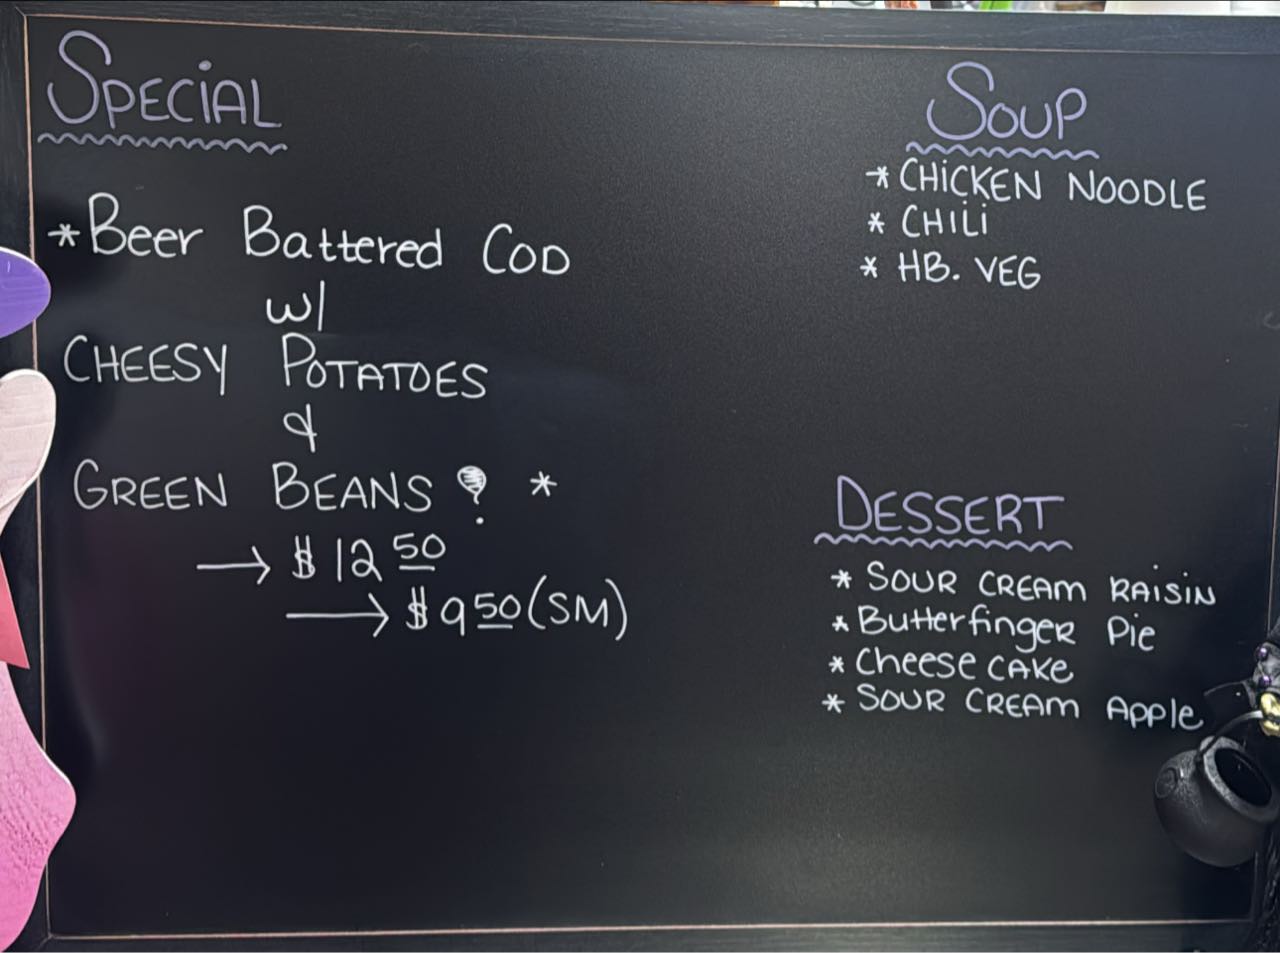 Special
*Beer Battered Cod
w/
Cheesy Potatoes
&
Green Beans! *
→ $12 50
→ $9 50 (SM)
Soup
* Chicken Noodle
* Chili
* HB. Veg
Dessert
* Sour Cream Raisin
* Butterfinger Pie
* Cheese cake
* Sour Cream Apple